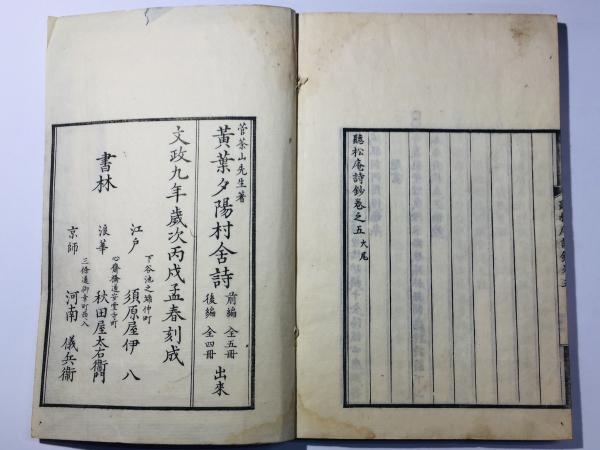 聽松庵詩鈔卷之五大尾
菅茶山先生著
黃葉夕陽村舍詩 前編 全五冊 後編 全四冊 出來
文政九年歲次丙戌孟春刻成
書林
江戶 下谷池之端仲町 須原屋伊八
浪華 心齋橋通安堂寺町 秋田屋太右衞門
京師 三條通御幸町西入 河南儀兵衞